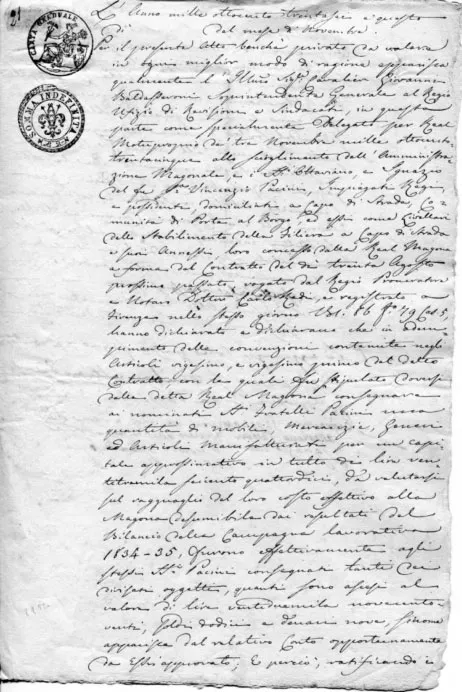 21
CARTA BOLLATA
SOMMA INDEFINITA
L'Anno mille ottocento trentasei e questo
dì del mese di Novembre.
Per il presente Atto benchè privato da valere
in ogni miglior modo di ragione apparisca
qualmente l'Illmo Sigr. Cavalier Giovanni
Baldasseroni Soprintendente Generale al Regio
Ufizio di Revisione e Sindacati, in questa
parte come specialmente Delegato per Real
Motuproprio de' tre Novembre mille ottocento
trentacinque allo scioglimento dell'Amministra
zione Magonale, e i SSri. Ottaviano, e Ignazio
del fu Sr. Vincenzio Pacini, Impiegati Regi,
e possidenti, domiciliati a Capo di Strada, Co
munità di Porta al Borgo, ed essi come Livellari
dello Stabilimento della Filiera a Capo di Strada
e suoi Annessi, loro concesso dalla Real Magona
a forma del Contratto del dì trenta Agosto
prossimo passato, rogato dal Regio Procuratore
e Notaro Dottor Carlo Redi, e registrato a
Firenze nello stesso giorno Vol. 16 fo. 79 Cas. 5,
hanno dichiarato e dichiarano che in adem
pimento delle convenzioni contenute negli
Articoli vigesimo, e vigesimo primo del detto
Contratto con le quali fu stipulato doversi
dalla detta Real Magona consegnare
ai nominati SSri. Fratelli Pacini una
quantità di mobili, Mercanzie, Generi
ed Articoli Manifatturati per un capi
tale approssimativo in tutto di lire ven
tetremila seicento quattordici, da valutarsi
sul ragguaglio del loro costo effettivo alla
Magona desumibile dai resultati del
Bilancio della Campagna lavorativa
1834-35, furono effettivamente agli
stessi SSri. Pacini consegnati tanti dei
divisati oggetti, quanti sono ascesi al
valore di lire ventiduemila novecento
venti, soldi dodici e denari nove, siccome
apparisce dal relativo Conto opportunamente
da Essi approvato; E perciò, ratificando in